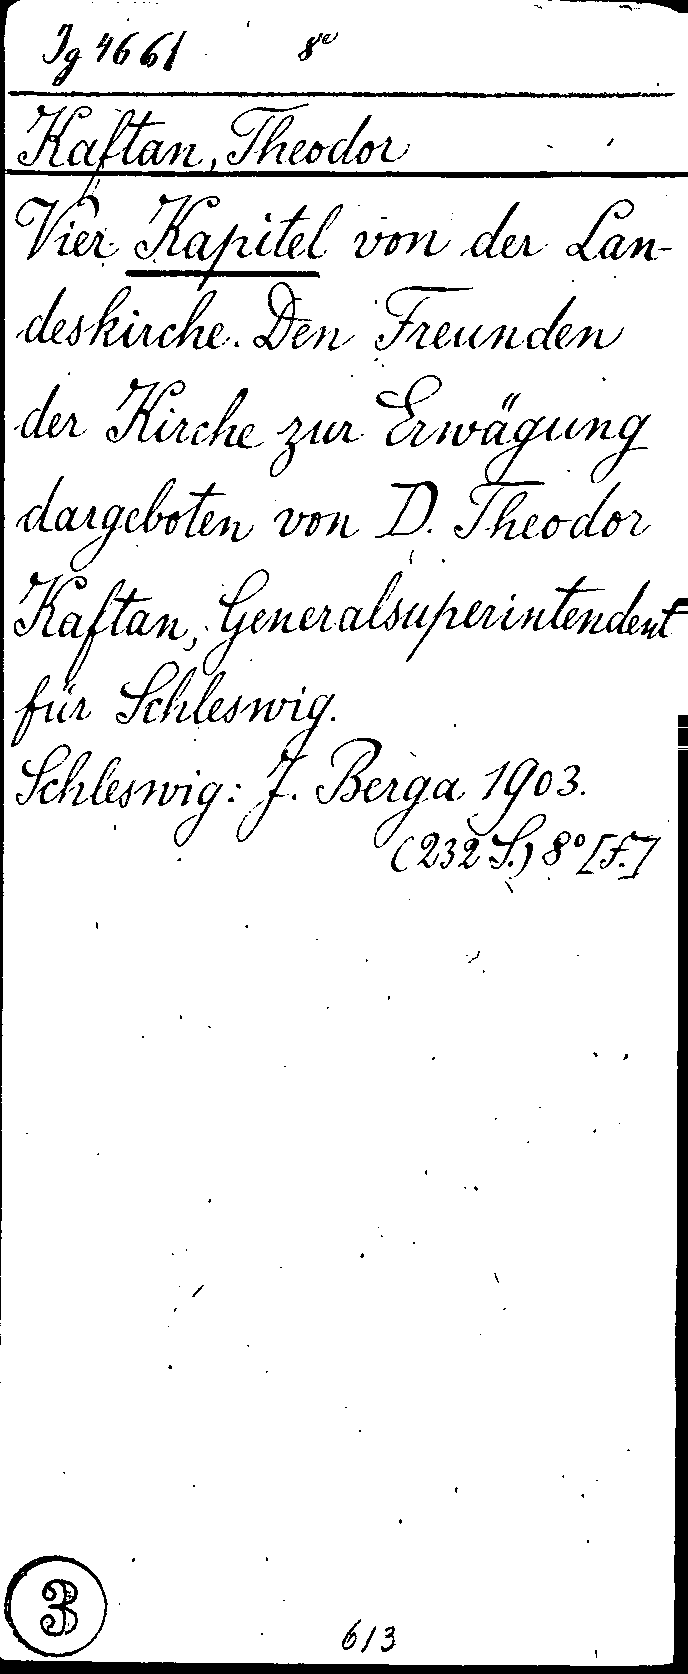 Jg 4661 8°
Kaftan, Theodor
Vier Kapitel von der Lan-
deskirche. Den Freunden
der Kirche zur Erwägung
dargeboten von D. Theodor
Kaftan, Generalsuperintendent
für Schleswig.
Schleswig: J. Berga 1903.
(232 S.) 8° [F.]
3
613